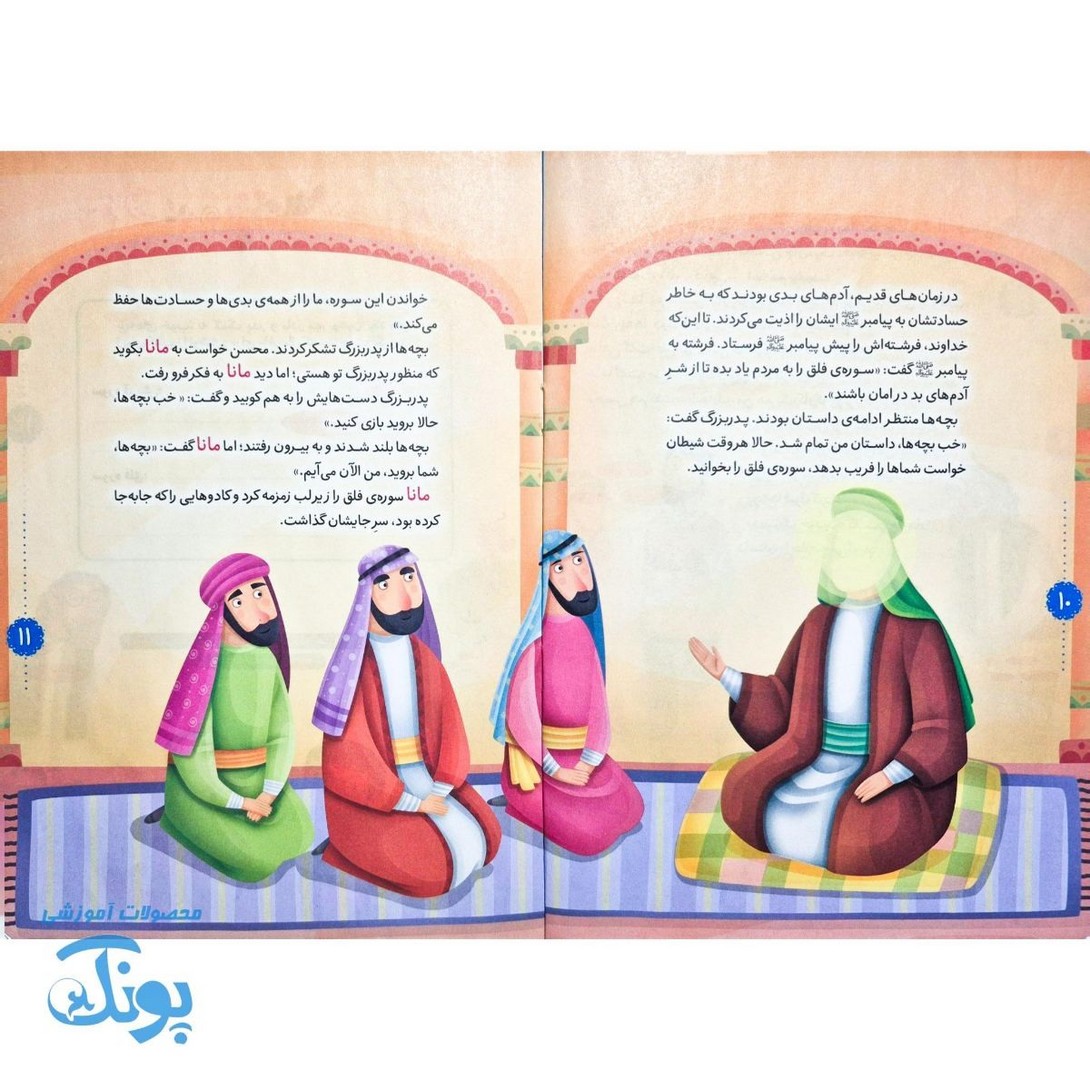 در زمان‌های قدیم، آدم‌های بدی بودند که به خاطر
حسادتشان به پیامبر ﷺ ایشان را اذیت می‌کردند. تا این‌که
خداوند، فرشته‌اش را پیش پیامبر ﷺ فرستاد. فرشته به
پیامبر ﷺ گفت: «سوره‌ی فلق را به مردم یاد بده تا از شرِ
آدم‌های بد در امان باشند».
بچه‌ها منتظر ادامه‌ی داستان بودند. پدربزرگ گفت:
«خب بچه‌ها، داستان من تمام شد. حالا هر وقت شیطان
خواست شماها را فریب بدهد، سوره‌ی فلق را بخوانید.
۱۰
خواندن این سوره، ما را از همه‌ی بدی‌ها و حسادت‌ها حفظ
می‌کند.»
بچه‌ها از پدربزرگ تشکر کردند. محسن خواست به مانا بگوید
که منظور پدربزرگ تو هستی؛ اما دید مانا به فکر فرو رفت.
پدربزرگ دست‌هایش را به هم کوبید و گفت: « خب بچه‌ها،
حالا بروید بازی کنید.»
بچه‌ها بلند شدند و به بیرون رفتند؛ اما مانا گفت: «بچه‌ها،
شما بروید، من الآن می‌آیم.»
مانا سوره‌ی فلق را زیر لب زمزمه کرد و کادوهایی را که جابه‌جا
کرده بود، سرِ جایشان گذاشت.
۱۱
محصولات آموزشی
پونک